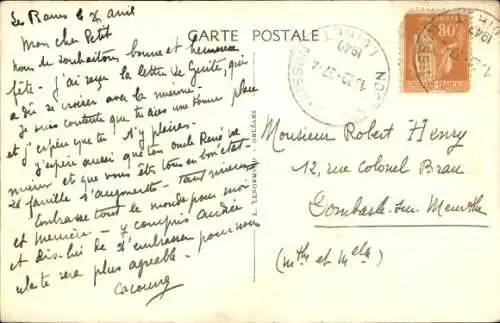 CARTE POSTALE
Les Baues le 26 avril
Mon cher Petit
nous te souhaitons bonne et heureuse
fête - j'ai reçu la lettre de Guite, qui
a dû se croiser avec la mienne.
Je suis contente que tu aies une bonne place
et j'espère que tu t'y plaires.
J'espère aussi que ton oncle René va
mieux et que vous êtes tous en bon état.
La famille s'augmente - Tant mieux
Embrasse tout le monde pour moi
et Memère - y compris Andrée
et dis-lui de t'embrasser pour nous
cela te sera plus agréable.
80c
1940
LOIRET
Monsieur Robert Henry
12, rue Colonel Brau
Dombasle-sur-Meurthe
(Mthe et Mlle)
L. LENORMAND - ORLÉANS